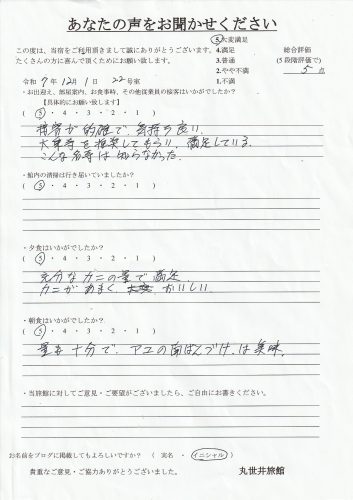 あなたの声をお聞かせください
この度は、当宿をご利用頂きまして誠にありがとうございます。
たくさんの方に喜んで頂くためにお願い致します。
5.大変満足
4.満足
3.普通
2.やや不満
1.不満
総合評価
(5段階評価で)
5 点
令和 7年 12月 1日 22号室
・お出迎え、部屋案内、お食事時、その他従業員の接客はいかがでしたか?
【具体的にお願い致します】
( 5 ・ 4 ・ 3 ・ 2 ・ 1 )
接客が的確で、気持ち良い。
大乗寺を推奨してもらい、満足している。
こんな名寺は知らなかった。
・館内の清掃は行き届いていましたか?
( 5 ・ 4 ・ 3 ・ 2 ・ 1 )
・夕食はいかがでしたか?
( 5 ・ 4 ・ 3 ・ 2 ・ 1 )
充分なカニの量で満足。
カニがあまく、おいしい
・朝食はいかがでしたか?
( 5 ・ 4 ・ 3 ・ 2 ・ 1 )
量も十分で、アユの南ばんづけ、は美味。
・当旅館に対してご意見・ご要望がございましたら、ご自由にお書きください。
お名前をブログに掲載してもよろしいですか? ( 実名 ・ イニシャル )
貴重なご意見・ご協力ありがとうございました。
丸世井旅館